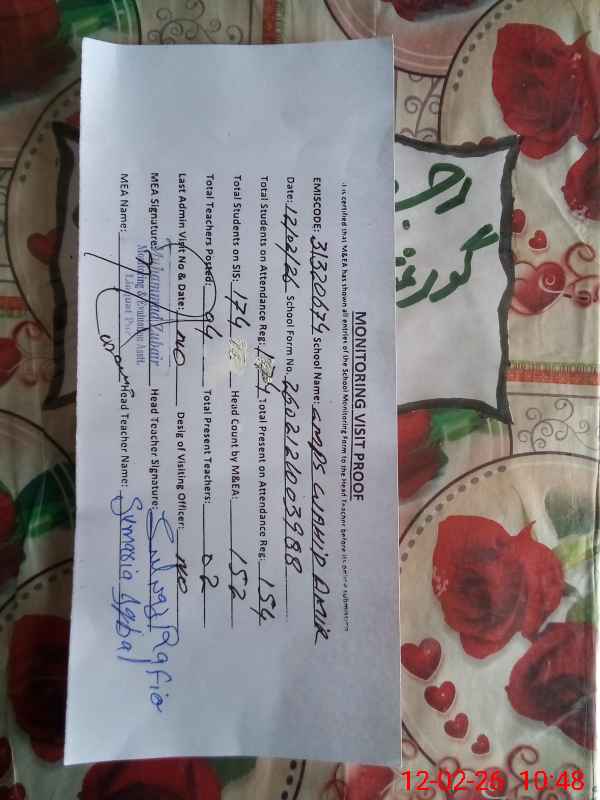 MONITORING VISIT PROOF
It is certified that M&EA has shown all entries of the School Monitoring Form to the Head Teacher before its online submission
EMISCODE: 31320674 School Name: GMPS WAHID BAKIR
Date: 12/02/26 School Form No. 260212003988
Total Students on Attendance Reg: 174 Total Present on Attendance Reg: 154
Total Students on SIS: 174 Head Count by M&EA: 152
Total Teachers Posted: 04 Total Present Teachers: 02
Last Admin Visit No & Date: NO Desig of Visiting Officer: NO
MEA Signature: Head Teacher Signature:
Muhammad Zubair
Monitoring & Evaluation Asstt.
Liaquat Pur
MEA Name: Head Teacher Name: Sumaria Iqbal
12-02-26 10:48